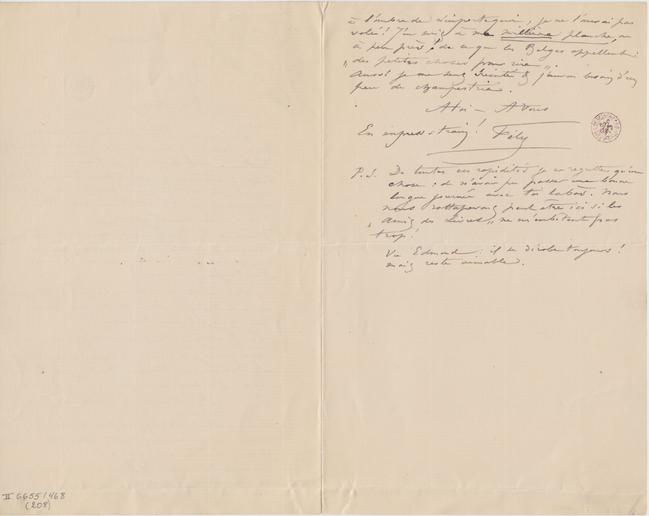 à l'ombre de n'importequoi, je ne l'aurai pas
volé! J'en suis à ma millième planche, ou
à peu près! de ce que les Belges appellent:
„des petites choses pour rire".
Aussi je me sens éreinté & j'aurai besoin d'un
peu de champêtrie.
A toi – A Vous
En express-train! Fély
P.S. De toutes ces rapidités je ne regrette qu'une
chose: de n'avoir pu passer une bonne
longue journée avec toi là bas. Nous
nous rattraperons peut être ici si les
„Amis des Livres", ne m'embêtent pas
trop!
Vu Edmond: il se dérobe toujours!
mais reste aimable.
II 6655/468
(208)